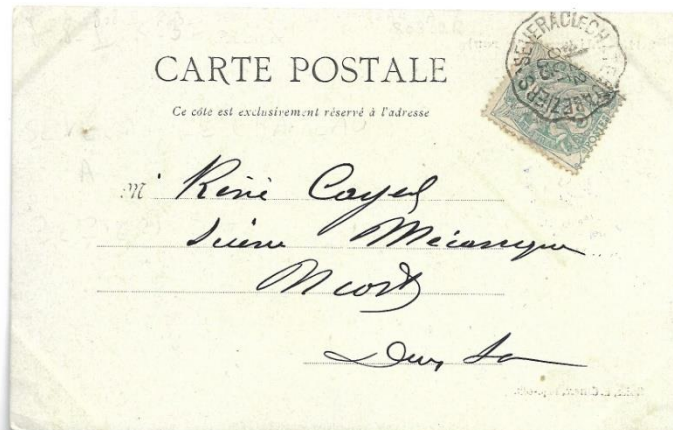 CARTE POSTALE
Ce côté est exclusivement réservé à l'adresse
SEVERAC LE CHATEAU A BEZIERS
M René Cayel
Scierie Mécanique
Niort
Deux